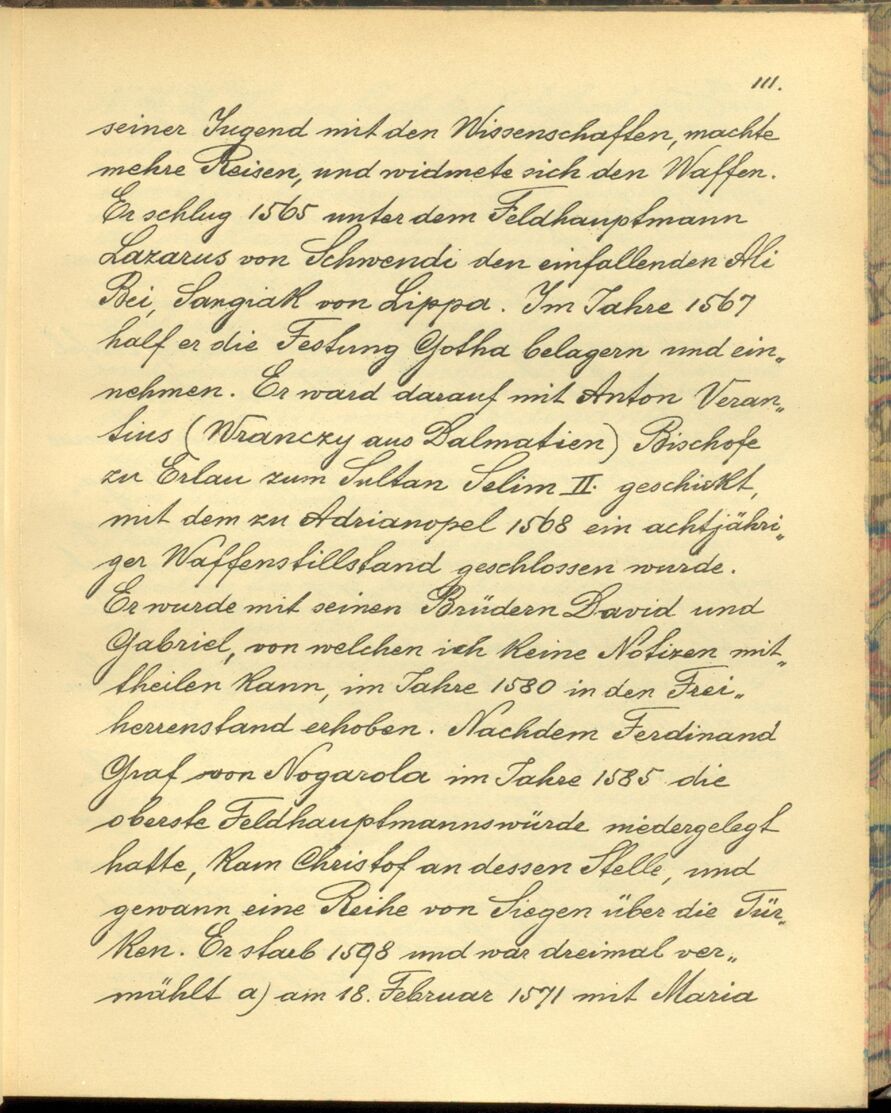 111.
seiner Jugend mit den Wissenschaften, machte
mehre Reisen, und widmete sich den Waffen.
Er schlug 1565 unter dem Feldhauptmann
Lazarus von Schwendi den einfallenden Ali
Bei, Sangiak von Lippa. Im Jahre 1567
half er die Festung Gotha belagern und ein„
nehmen. Er ward darauf mit Anton Veran„
tius (Wranczy aus Dalmatien) Bischofe
zu Erlau zum Sultan Selim II. geschickt,
mit dem zu Adrianopel 1568 ein achtjähri„
ger Waffenstillstand geschlossen wurde.
Er wurde mit seinen Brüdern David und
Gabriel, von welchen ich keine Notizen mit„
theilen kann, im Jahre 1580 in den Frei„
herrenstand erhoben. Nachdem Ferdinand
Graf von Nogarola im Jahre 1585 die
oberste Feldhauptmannswürde niedergelegt
hatte, kam Christof an dessen Stelle, und
gewann eine Reihe von Siegen über die Tür„
ken. Er starb 1598 und war dreimal ver„
mählt a) am 18. Februar 1571 mit Maria